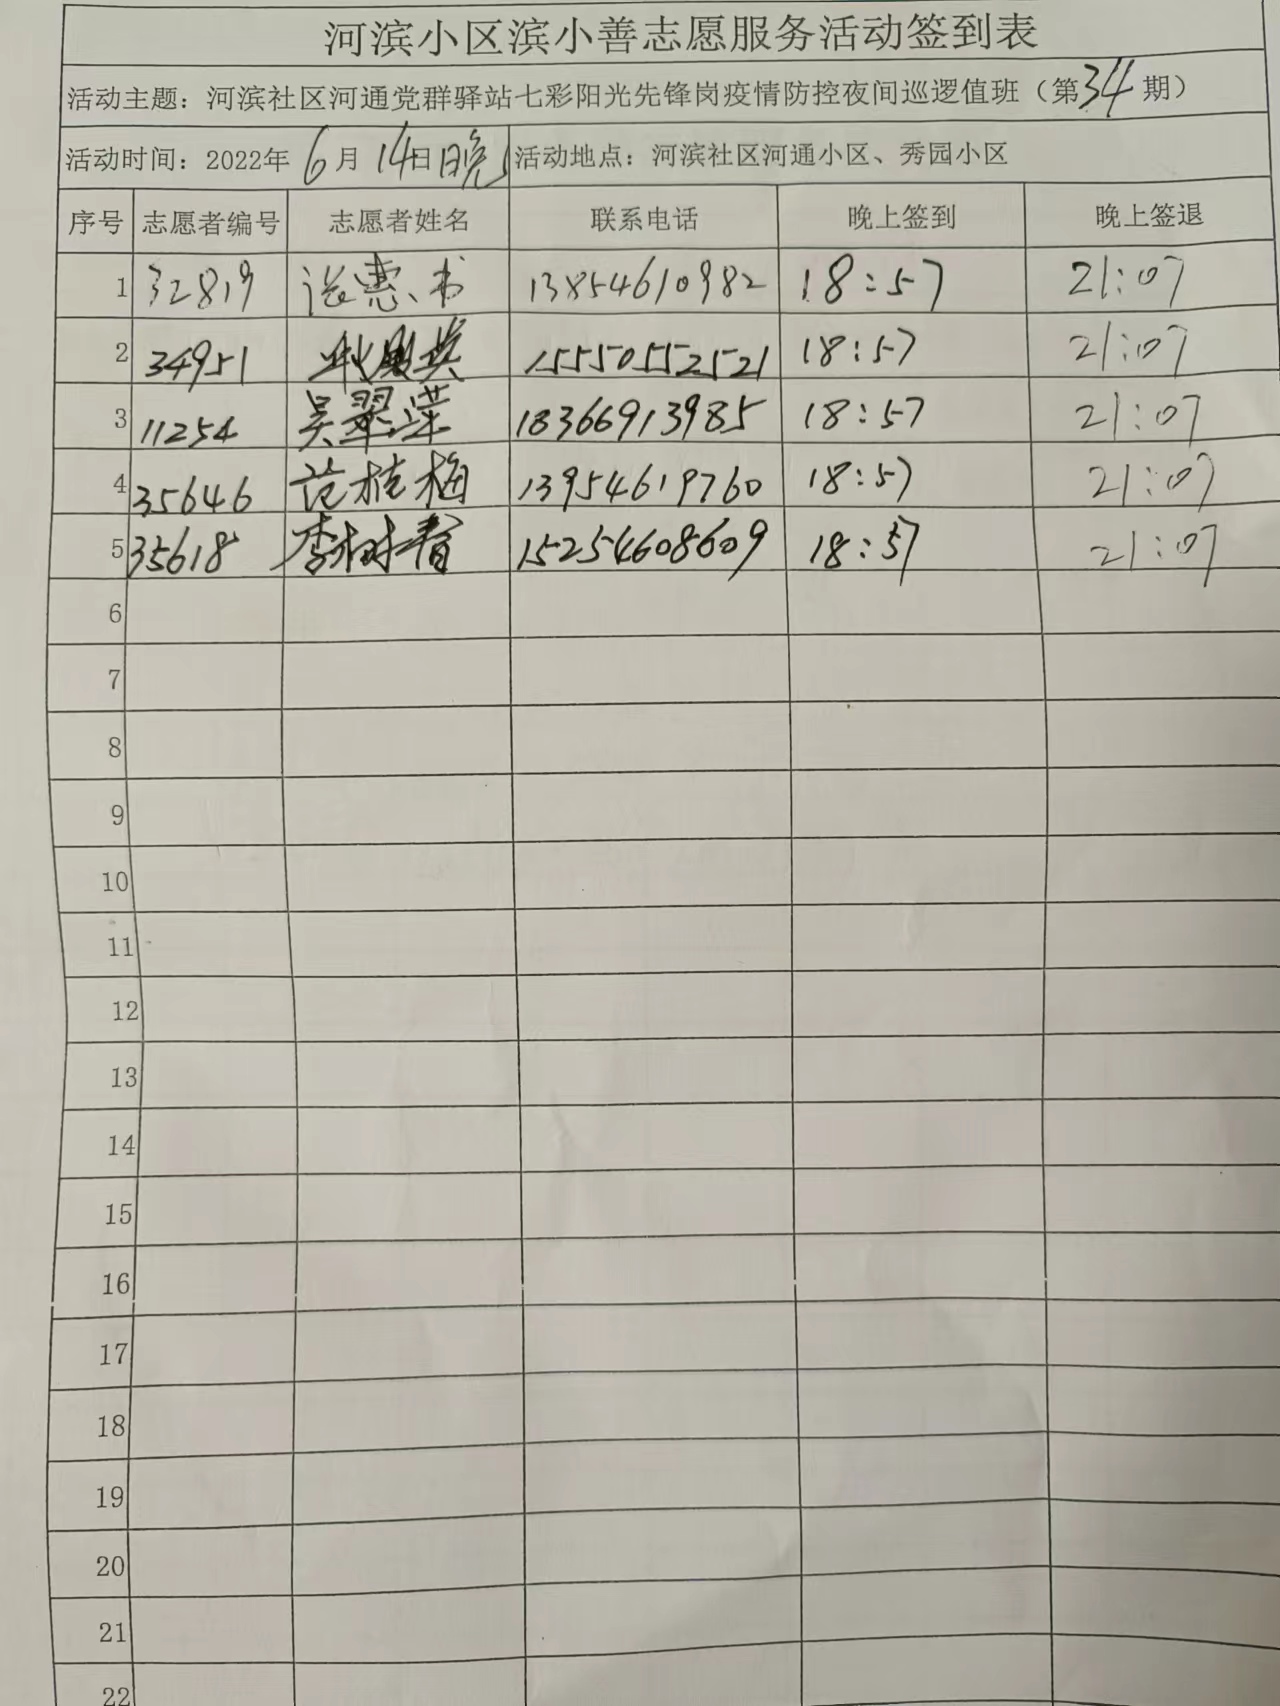 河滨小区滨小善志愿服务活动签到表
活动主题：河滨社区河通党群驿站七彩阳光先锋岗疫情防控夜间巡逻值班（第34期）
活动时间：2022年6月14日晚 活动地点：河滨社区河通小区、秀园小区
序号 志愿者编号 志愿者姓名 联系电话 晚上签到 晚上签退
1 32819 惠书 13854610982 18:57 21:07
2 34951 15550552521 18:57 21:07
3 11254 吴翠萍 18366913985 18:57 21:07
4 35646 范桂梅 13954619760 18:57 21:07
5 35618 李树青 15254608609 18:57 21:07
6
7
8
9
10
11
12
13
14
15
16
17
18
19
20
21
22